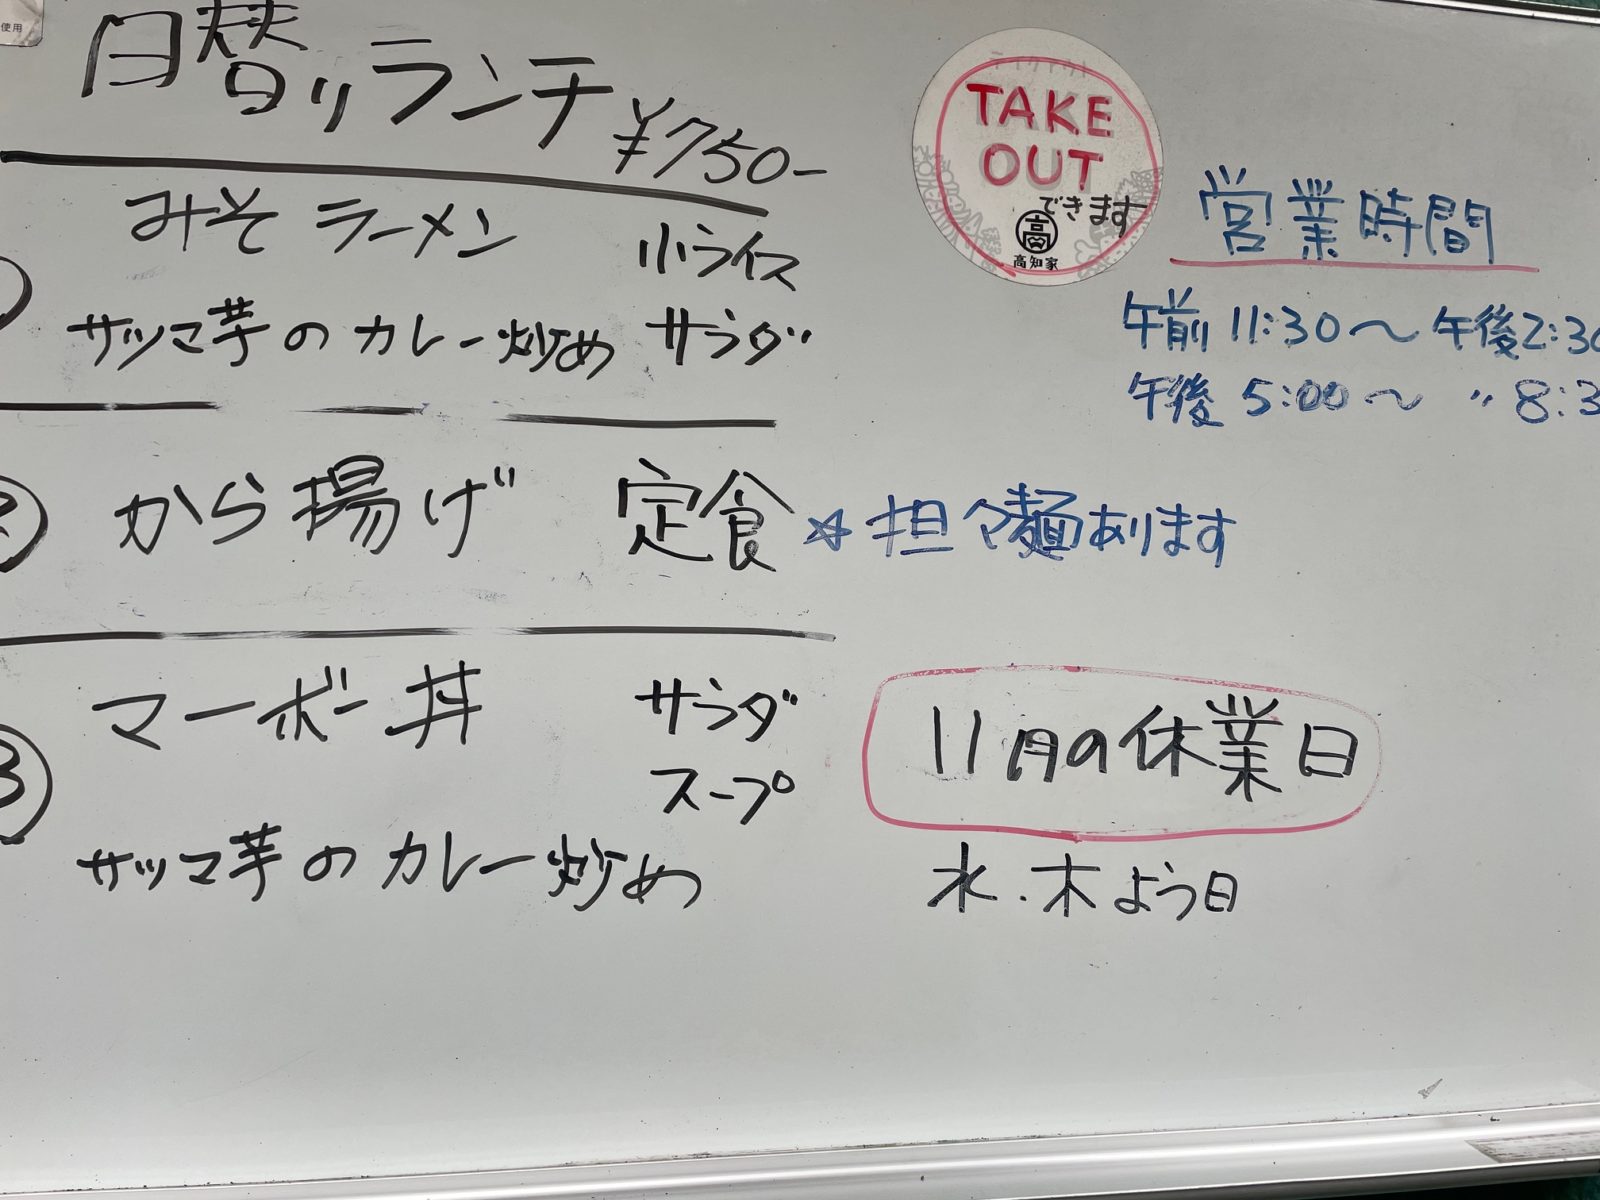 使用
日替りランチ ¥750-
みそラーメン 小ライス
サツマ芋のカレー炒め サラダ
② から揚げ 定食
③ マーボー丼 サラダ
スープ
サツマ芋のカレー炒め
TAKE
OUT
できます
高
高知家
営業時間
午前11:30〜午後2:30
午後5:00〜 〃 8:3
☆担々麺あります
11月の休業日
水・木よう日